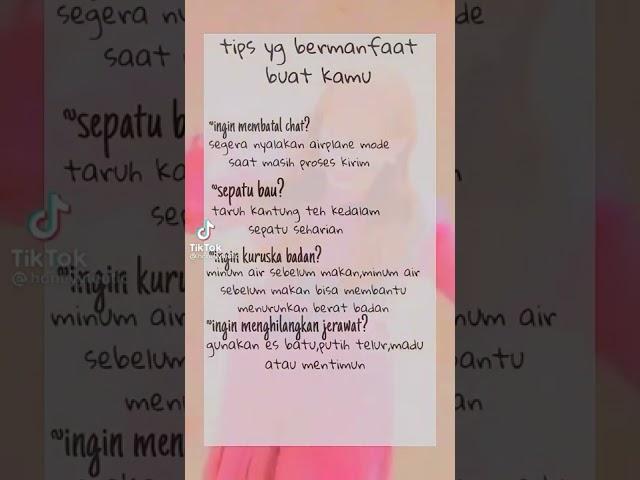 tips yg bermanfaat
buat kamu
~ingin membatal chat?
segera nyalakan airplane mode
saat masih proses kirim
~sepatu bau?
taruh kantung teh kedalam
sepatu seharian
~ingin kuruska badan?
minum air sebelum makan,minum air
sebelum makan bisa membantu
menurunkan berat badan
~ingin menghilangkan jerawat?
gunakan es batu,putih telur,madu
atau mentimun
TikTok
segera n
saat
~sepatu b
taruh ka
se
TikTok
~ingin kuru
minum air
sebelu
men
~ingin men
mode
m
am
um air
antu
n
?